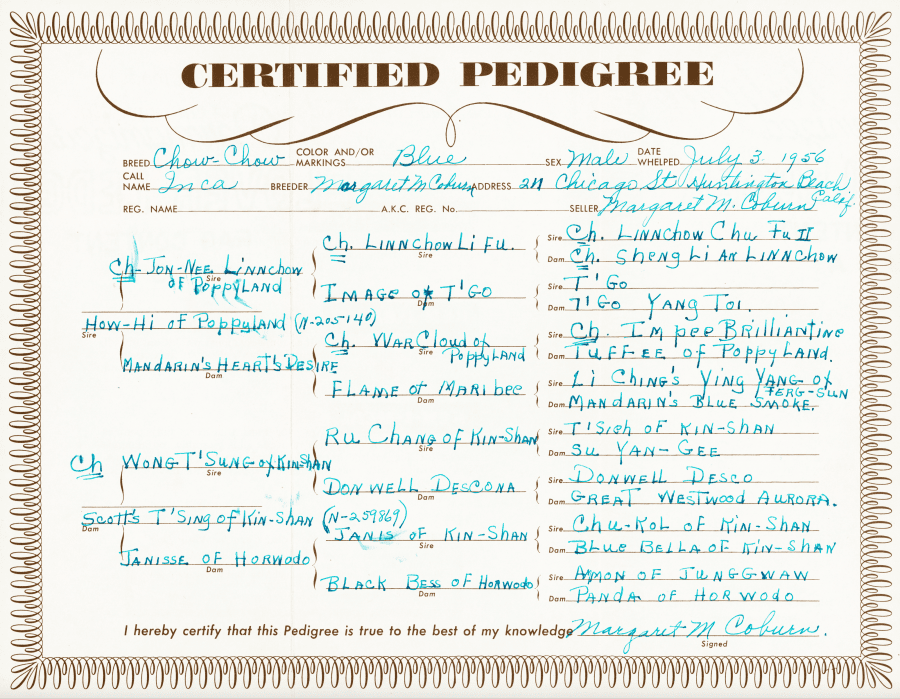 CERTIFIED PEDIGREE
BREED Chow-Chow COLOR AND/OR MARKINGS Blue SEX Male DATE WHELPED July 3, 1956
CALL NAME Inca BREEDER Margaret M Coburn ADDRESS 211 Chicago St Huntington Beach Calif.
REG. NAME A.K.C. REG. No. SELLER Margaret M. Coburn
Sire Ch. LINNCHOW CHU FU II
Ch. LINNCHOW LI FU.
Sire
Dam Ch. SHENG LI AN LINNCHOW
Ch-JON-NEE LINNCHOW
Sire
OF POPPYLAND
Sire T'GO
IMAGE OF T'GO
Dam
Dam T'GO YANG TOI.
HOW-HI OF POPPYLAND (N-205-140)
Sire
Sire Ch. IMPEE BRILLIANTINE
Ch. WAR CLOUD of POPPYLAND
Sire
Dam TUFF-EE OF POPPYLAND.
MANDARIN'S HEART'S DESIRE
Dam
Sire LI CHING'S YING YANG OF FERG-SUN
FLAME OF MARIBEE
Dam
Dam MANDARIN'S BLUE SMOKE.
Sire T'SIEH OF KIN-SHAN
RU CHANG OF KIN-SHAN
Sire
Dam SU YAN-GEE
Ch WONG T'SUNG OF KIN-SHAN
Sire
Sire DONWELL DESCO
DONWELL DESCONA
Dam
Dam GREAT WESTWOOD AURORA.
SCOTT'S T'SING OF KIN-SHAN (N-259869)
Dam
Sire CHU-KOL OF KIN-SHAN
JANIS OF KIN-SHAN
Sire
Dam BLUE BELLA OF KIN-SHAN
JANISSE OF HORWODO
Dam
Sire AMON OF JUNGGWAW
BLACK BESS OF HORWODO
Dam
Dam PANDA OF HORWODO
I hereby certify that this Pedigree is true to the best of my knowledge Margaret M Coburn.
Signed